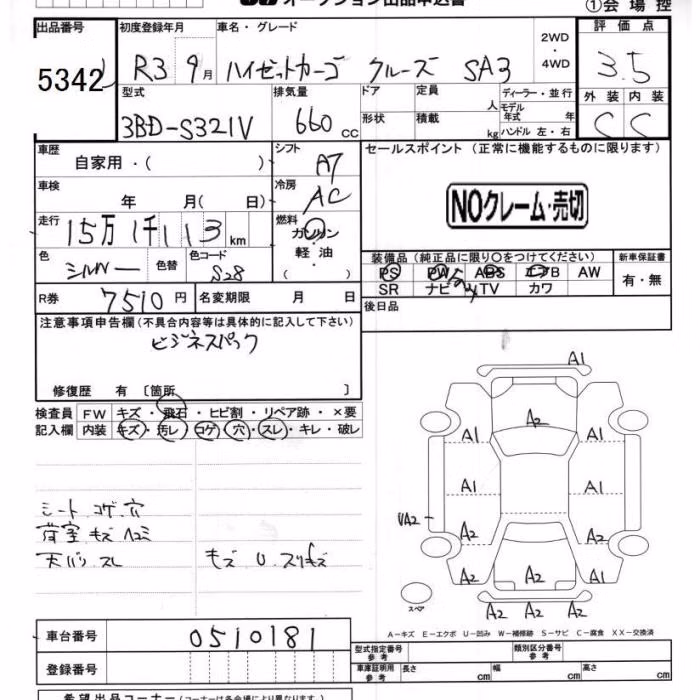 オークション出品申込書 ①会場控
出品番号 初度登録年月 車名・グレード 2WD・4WD 評価点
5342 R3 9月 ハイゼットカーゴ クルーズ SA3 3.5
型式 排気量 ドア 定員 人 ディーラー・並行 外装 内装
3BD-S321V 660cc 形状 積載 kg モデル年式 年 ハンドル 左・右 C C
車歴 自家用・( ) シフト AT セールスポイント(正常に機能するものに限ります)
車検 年 月( 日) 冷房 AC NOクレーム・売切
走行 15万1千113km 燃料 ガソリン・軽油・( )
色 シルバー 色替 色コード S28 装備品(純正品に限り〇をつけてください) 新車保証書
PS PW ABS エアB AW 有・無
R券 7510円 名変期限 月 日 SR ナビ TV カワ
注意事項申告欄(不具合内容等は具体的に記入して下さい) 後日品
ビジネスパック
修復歴 有 〔箇所 〕
検査員 FW キズ・飛石・ヒビ割・リペア跡・×要
記入欄 内装 キズ・汚レ・コゲ・穴・スレ・キレ・破レ
A1
A2
A1 A1
A1 A1
UA2 A2 A2
A2 A2 A1
A2 A2 A2
シート コゲ 穴
荷室 キズ ヘコミ
天バリ スレ キズ U スリキズ
スペア
A-キズ E-エクボ U-凹み W-補修跡 S-サビ C-腐食 XX-交換済
車台番号 0510181 型式指定番号 参考 類別区分番号 参考
登録番号 車庫証明用 参考 長さ cm 幅 cm 高さ cm
希望出品コーナー(コーナーは各会場により異なります)